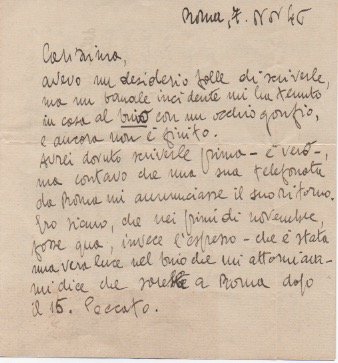 Roma, 7. Nov 46
Carissima,
avevo un desiderio folle di scriverle,
ma un banale incidente mi ha tenuto
in casa al buio con un occhio gonfio,
e ancora non è finito.
Avrei dovuto scriverle prima - è vero -,
ma contavo che una sua telefonata
da Roma mi annunciasse il suo ritorno.
Ero sicuro, che nei primi di novembre,
fosse qua, invece l'espresso - che è stata
una vera luce nel buio che mi attorniava -
mi dice che sarebbe a Roma dopo
il 15. Peccato.